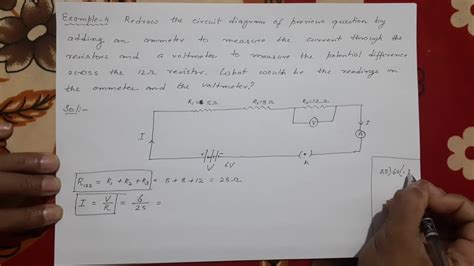 Example-4 Redraw the circuit diagram of previous question by
adding an ammeter to measure the current through the
resistors and a voltmeter to measure the potential difference
across the 12Ω resistor. What would be the readings in
the ammeter and the voltmeter?
Sol:-
R₁=5Ω R₂=8Ω R₃=12Ω
V
I
A
I
6V
K
R₁₂₃ = R₁ + R₂ + R₃ = 5 + 8 + 12 = 25Ω
I = V/R = 6/25 =
25)60(